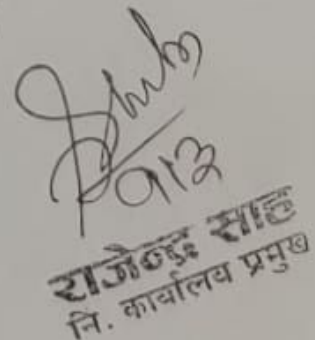 ९१३
राजेन्द्र साह
नि. कार्यालय प्रमुख